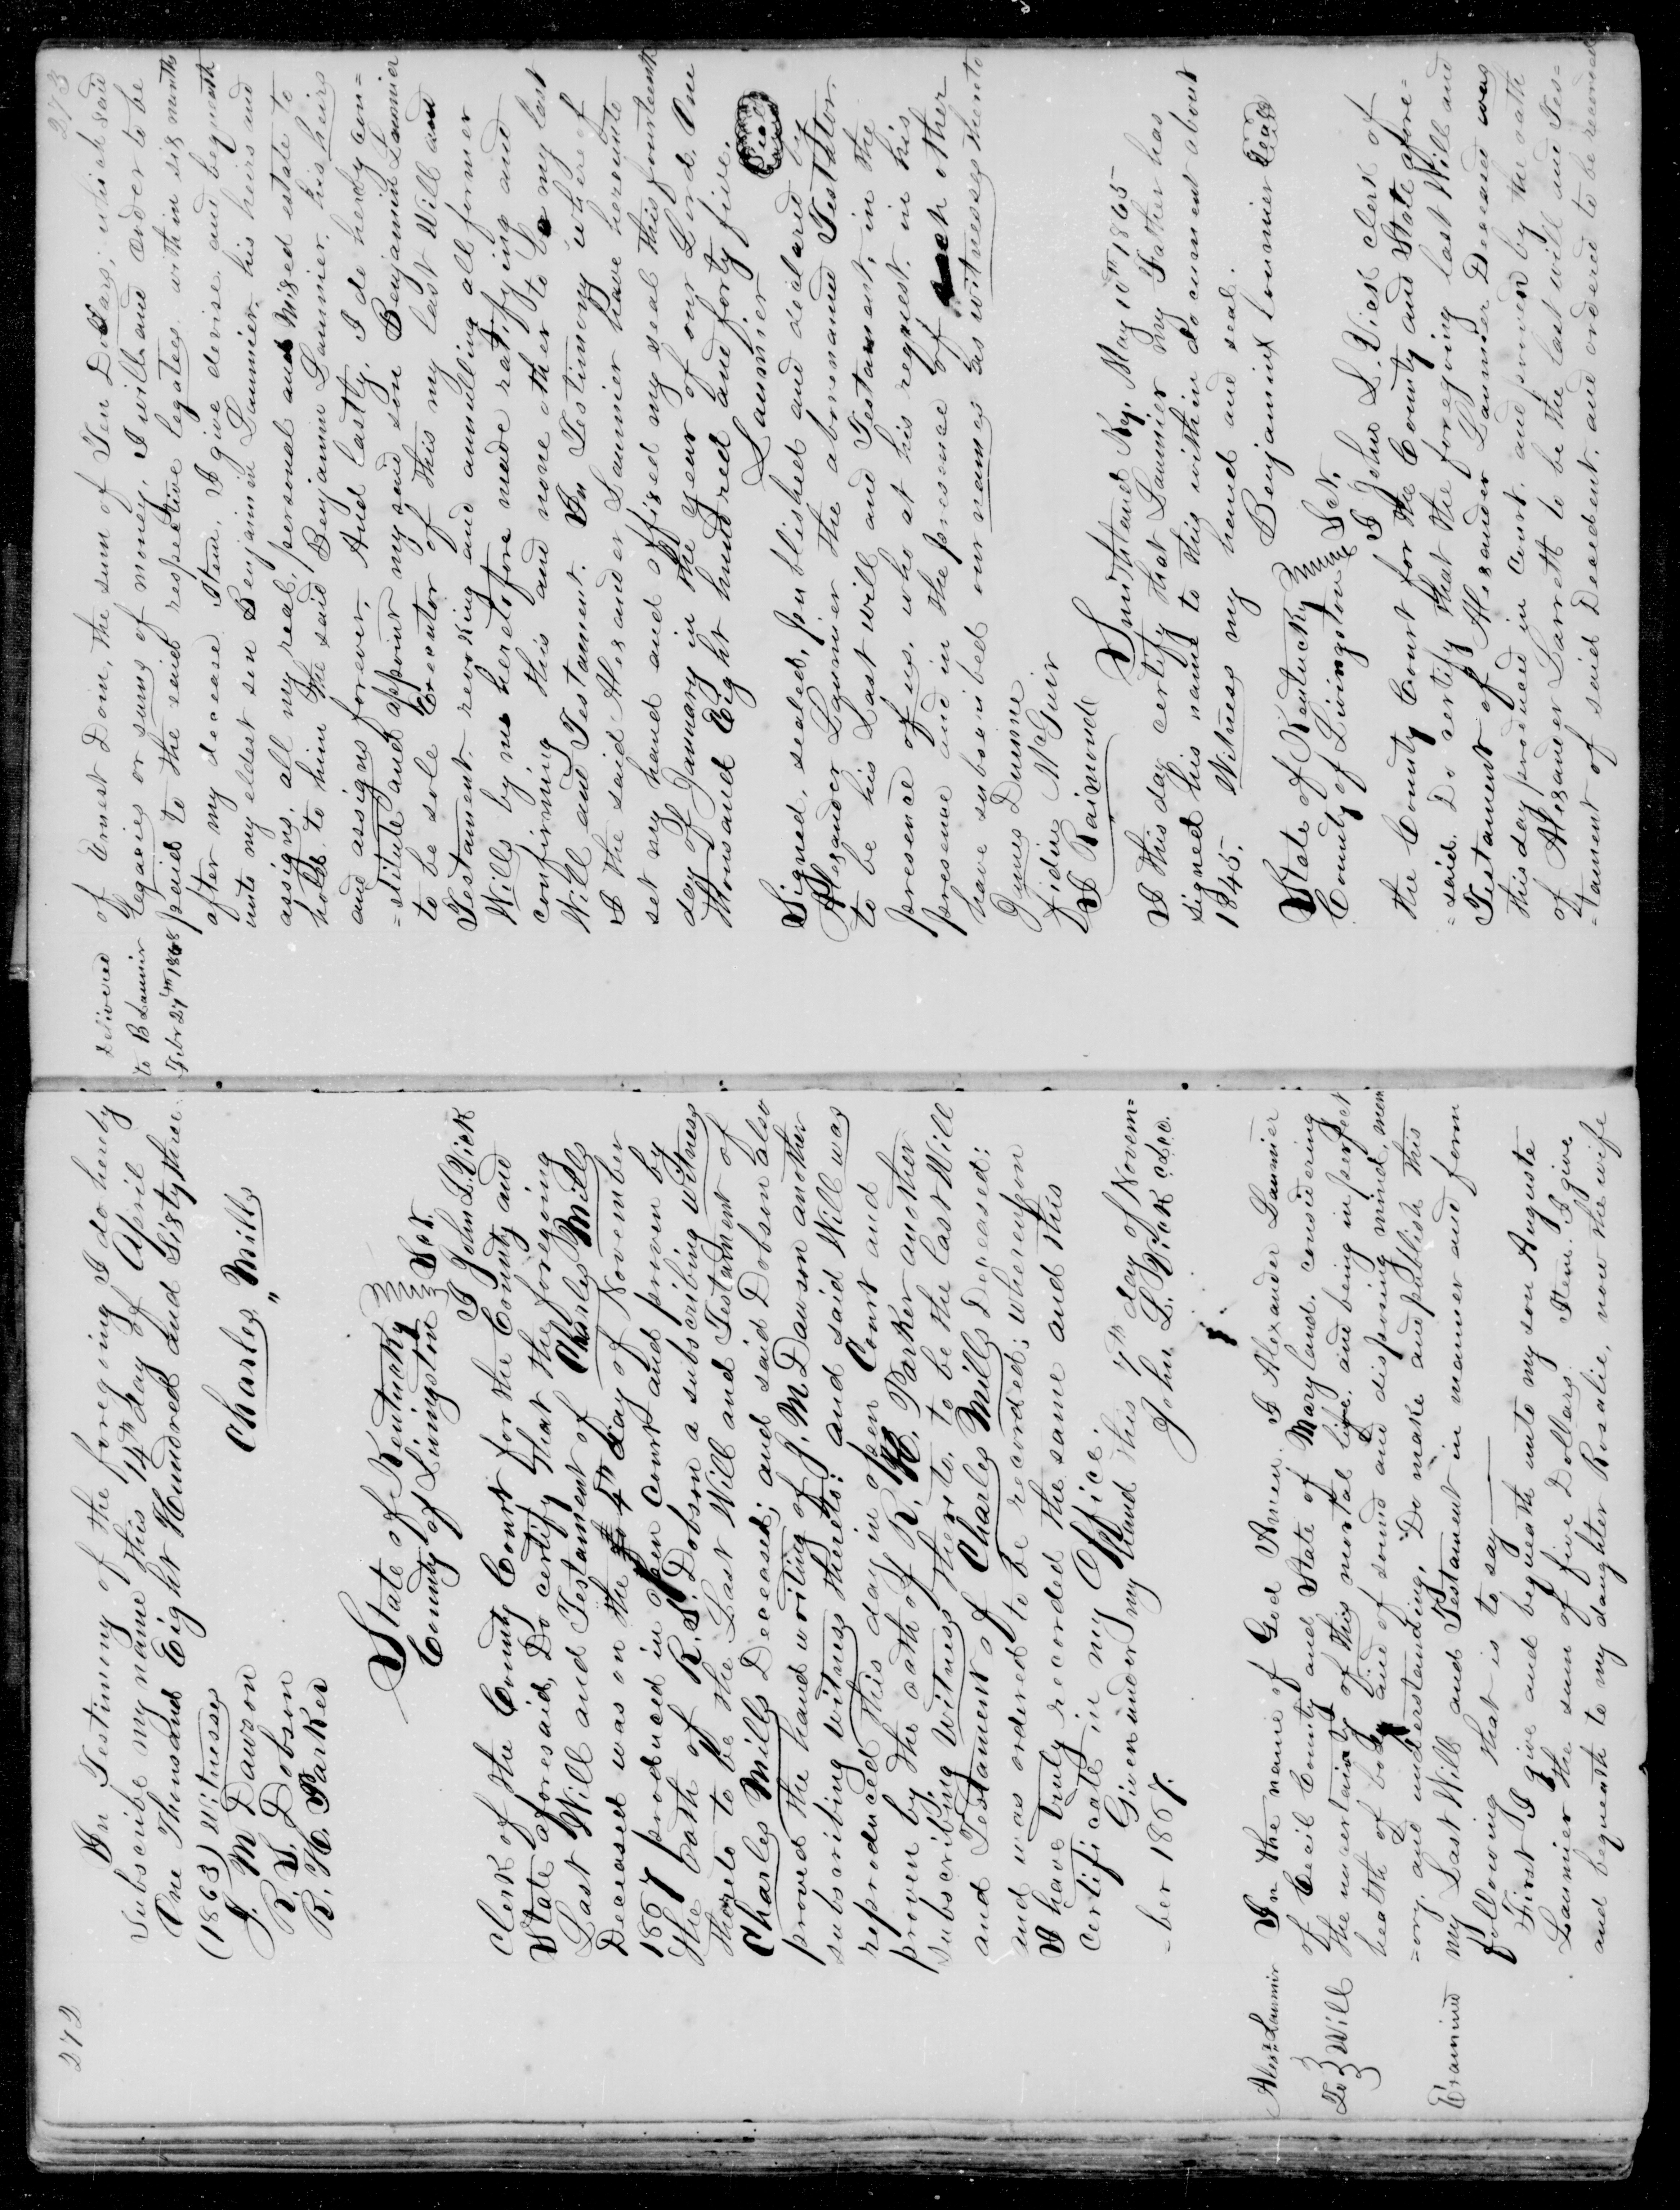 272
In Testimony of the foregoing I do hereby
Subscribe my name this 14th day of April
One Thousand Eight Hundred and Sixtythree
(1863) Witnesses
Charles Mills
J. M Dawson
R. S. Dobson
R. H. Parker
State of Kentucky
County of Livingston Sct.
I John L. Vick
Clerk of the County Court for the County and
State aforesaid, Do certify that the foregoing
Last Will and Testament of Charles Mills
Deceased was on the 4th day of November
1867 produced in open Court and proven by
the oath of R. S. Dobson a subscribing witness
thereto to be the Last Will and Testament of
Charles Mills Deceased; and said Dobson also
proved the hand writing of J. M Dawson another
subscribing witness thereto: and said Will was
reproduced this day in open Court and
proven by the oath of R. H. Parker another
subscribing Witness thereto, to be the last Will
and Testament of Charles Mills Deceased;
and was ordered to be recorded; whereupon
I have truly recorded the same and this
Certificate in my Office.
Given under my hand this 7th day of Novem=
-ber 1867.
John L. Vick clk.
Alexr Launier
To } Will
Examined
In the name of God Amen. I Alexander Launier
of Cecil County and State of Maryland, considering
the uncertainty of this mortal life, and being in perfect
health of body and of sound and disposing mind mem
=ory and understanding, Do make and publish this
my Last Will and Testament in manner and form
following that is to say
First I give and bequeath unto my son Auguste
Launier the sum of five Dollars. Item. I give
and bequeath to my daughter Rosalie, now the wife
273
Delivered
to B Launier
Febr 27th 1868
of Ernest Doin, the sum of Ten Dollars; which said
legacies or sums of money, I will and order to be
paid to the said respective legatees within six months
after my decease. Item, I give devise and bequeath
unto my eldest son Benjamin Launier, his heirs and
assigns, all my real, personal and Mixed estate to
hold to him the said Benjamin Launier, his heirs
and assigns forever. And lastly, I do hereby con=
=stitute and appoint my said son Benjamin Launier
to be sole Executor of this my last Will and
Testament, revoking and annulling all former
Wills by me heretofore made ratifying and
confirming this and none other to be my last
Will and Testament. In Testimony whereof
I the said Alexander Launier have hereunto
set my hand and affixed my seal this fourteenth
day of January in the year of our Lord One
thousand Eight hundred and forty five.
Launier Seal
Signed, sealed, published and declared by
Alexander Launier the abovenamed Testator
to be his Last will and Testament, in the
presence of us, who at his request, in his
presence and in the presence of each other
have subscribed our names as witnesses thereto
James Dunne
Fidine McGuir
S Raimond
Smithland Ky. May 10th 1865
I this day certify that Launier my Father has
signed his name to this within document about
1845. Witness my hand and seal.
Benjamin Launier Seal
State of Kentucky
County of Livingston Sct.
I John L. Vick clerk of
the County Court for the County and State afore=
=said. Do certify that the foregoing last Will and
Testament of Alexander Launier Deceased was
this day produced in Court, and proven by the oath
of Alexander Barrett to be the last will and Tes=
=tament of said Decedent, and ordered to be recorded